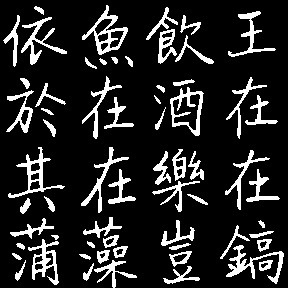 王在在鎬
飲酒樂豈
魚在在藻
依於其蒲